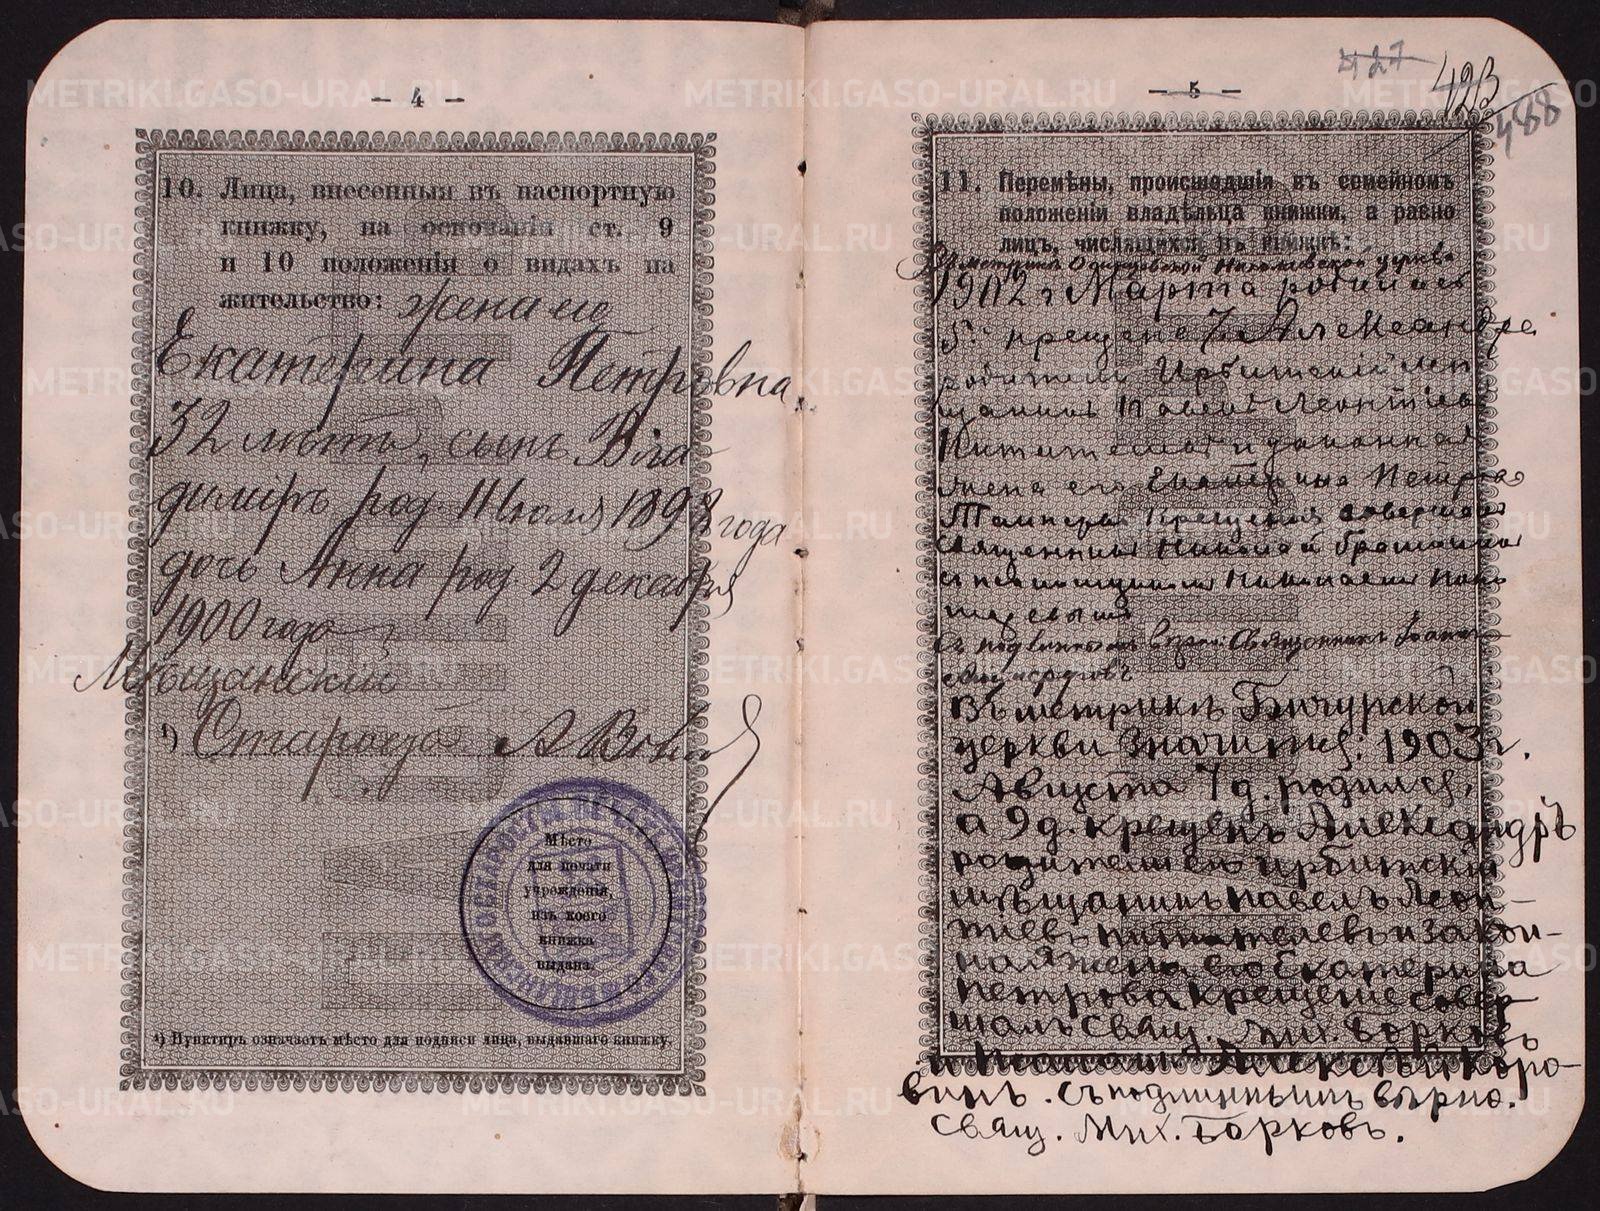 — 4 —
10. Лица, внесенныя въ паспортную
книжку, на основаніи ст. 9
и 10 положенія о видахъ на
жительство: жена его
Екатерина Петровна
32 лѣтъ, сынъ Вла
димiръ род. 11 Іюля 1898 года
дочь Анна род 2 декабря
1900 года
Мѣщанскій
¹) Староста А
Мѣсто
для печати
учрежденія,
изъ коего
книжка
выдана.
¹) Пунктиръ означаетъ мѣсто для подписи лица, выдавшаго книжку.
427
423
488
— 5 —
11. Перемѣны, происшедшія въ семейномъ
положеніи владѣльца книжки, а равно
лицъ, числящихся въ книжкѣ:
Николаевской церкви
1902 г Марта родилась
5. крещена 7 Александра
родители Ирбитскій мѣ
щанинъ Павелъ Леонтіевъ
и законная
жена его Екатерина Петрова
Таинство Крещенія совершалъ
Священникъ Николай
съ псаломщикомъ Николаемъ
Съ подлиннымъ вѣрно: Священникъ
Въ метрикѣ Бичурской
церкви значится: 1903 г.
Августа 7 д. родился,
а 9 д. крещенъ Александръ
родители его ирбитскій
мѣщанинъ Павелъ Леон-
тіевъ Питателевъ и закон-
ная жена его Екатерина
Петрова Крещеніе совер
шалъ Свящ. Мих. Борковъ
и псаломщ. Алексѣй Коро-
винъ. Съ подлиннымъ вѣрно.
Свящ. Мих. Борковъ.